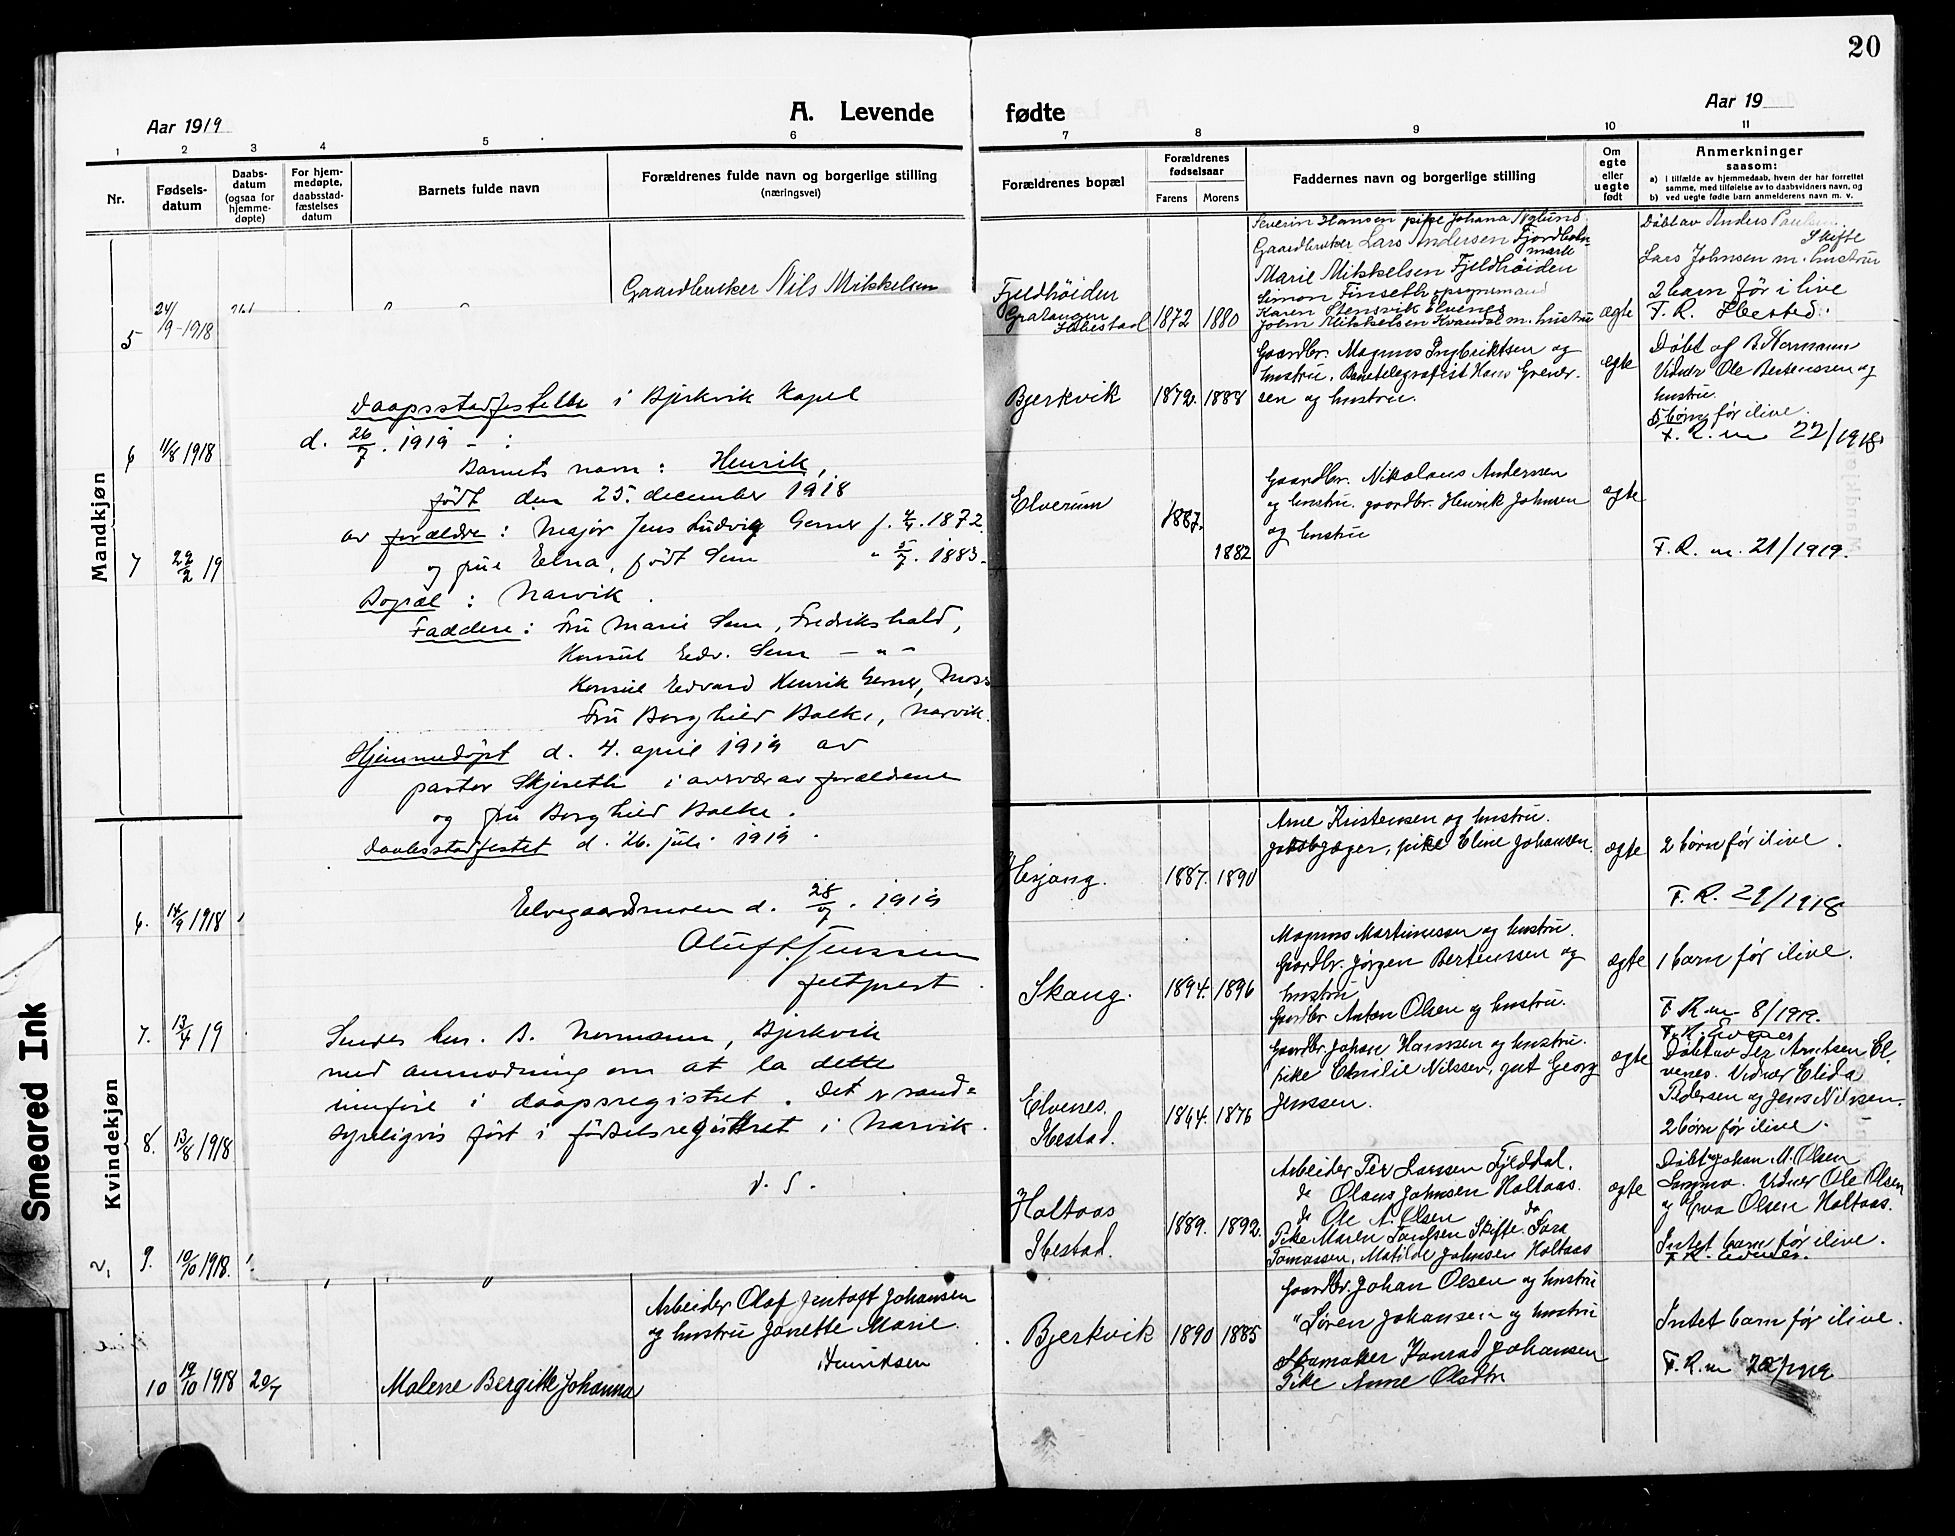 20
Aar 1919
A. Levende
fødte
Aar 19
1 2 3 4 5 6 7 8 9 10 11
Nr.
Fødsels-
datum
Daabs-
datum
(ogsaa for
hjemme-
døpte)
For hjem-
medøpte,
daabsstad-
fæstelses
datum
Barnets fulde navn
Forældrenes fulde navn og borgerlige stilling
(næringsvei)
Forældrenes bopæl
Forældrenes
fødselsaar
Farens
Morens
Faddernes navn og borgerlige stilling
Om
egte
eller
uegte
født
Anmerkninger
saasom:
a) I tilfælde av hjemmedaab, hvem der har forrettet
samme, med tilføielse av to daabsvidners navn, og
b) ved uegte fødte barn anmelderens navn m. v.
Mandkjøn
5
24/9-1918
Gaardbruker Nils Mikkelsen
Fjeldhöiden
Gratangen
Ibbestad
1872
1880
Severin Hansen pike Johana Nylund
Gaardbruker Lars Andersen Fjordbotn-
mark
Marie Mikkelsen Fjeldhöiden
Simon Finseth opsynsmand
Karen Stensvik Elvenes
John Mikkelsen Kvandal m. hustru
ægte
Döbt av Anders Paulsen
Skifte
Lars Johnsen m. hustru
2 barn för i live
F. R. Ibested.
6
11/8 1918
Bjerkvik
1872.
1888
Gaardbr. Magnus Ingbriktsen og
hustru. Banetelegrafist Hans Grener-
sen og hustru.
egte
Döbt af B. Normann
Vidner Ole Bertenssen og
hustru.
5 börn för ilive.
F. R. nr 22/1918.
7
22/2 19
Elverum
1887.
1882
Gaardbr. Nikolaus Anderssen
og hustru. gaardbr. Henrik Johnsen
og hustru
ægte
F. R. nr. 21/1919.
Daapsstadfestelse i Bjerkvik Kapel
d. 26/7. 1919 - :
Barnets navn: Henrik,
født den 25. december 1918
av forældre: Major Jens Ludvig Gerner f. 1872
og frue Elna, født Sem " 5/7. 1883.
Bopæl: Narvik.
Faddere: Fru Marie Sem, Fredrikshald,
Konsul Edv. Sem - " -
Konsul Edvard Henrik Gerner, Moss
Fru Borghild Balke, Narvik.
Hjemmedøpt d. 4. april 1919 av
pastor Skjeseth i overvær av forældrene
og fru Borghild Balke.
Daabsstadfestet d. 26. juli 1919.
Elvegaardsmoen d. 28/7. 1919
Oluf Jenssen
feltprest.
Sendes hr. B. Normann, Bjerkvik
med anmodning om at la dette
innføre i daapsregistret. Det er sand=
synligvis ført i fødselsregistret i Narvik.
d. S.
Kvindekjøn
6.
14/9 1918
Hesjang.
1887.
1890
Arne Kristensen og hustru.
pike Eline Johansen.
ægte
2 börn för ilive.
F. R. 29/1918
7.
13/4 19
Skoug.
1894.
1896
Magnus Martinussen og hustru.
Gaardbr. Jörgen Bertenssen og
hustru
Gaardbr Anton Olsen og hustru.
ægte
1 barn för ilive.
F. R nr 8/1919.
8.
13/8 1918
Elvenes.
Ibestad.
1864.
1876
Gaardbr. Johan Hanssen og hustru.
pike Emilie Nilssen, gut Georg
Jenssen.
ægte
F. R. Evenes
Döbt av Per Arntsen El-
venes. Vidner Elida
Pedersen og Jens Nilssen.
2 börn för ilive.
9.
10/10 1918.
Holtaas
Ibestad.
1889.
1892.
Arbeider Per Larssen Fjelddal.
do Olaus Johnsen Holtaas.
do Ole A. Olsen do
Pike Maren Paulsen Skifte. Sara
Tomassen, Matilde Johnsen Holtaas
ægte
Döbt av Johan M. Olsen
Vidner Ole Olsen
og Eva Olsen Holtaas.
Intet barn för ilive.
F. R. Evenes.
10
19/10 1918
20/7
Malene Bergitte Johanna
Arbeider Olaf Jentoft Johansen
og hustru Janette Marie
Henriksen
Bjerkvik
1890
1885
Gaardbr. Johan Olsen og hustru
" Sören Johansen og hustru
Skomaker Konrad Johansen
Pike Anne Olsdtr
Intet barn för ilive.
F. R. nr 20/1919
Smeared Ink